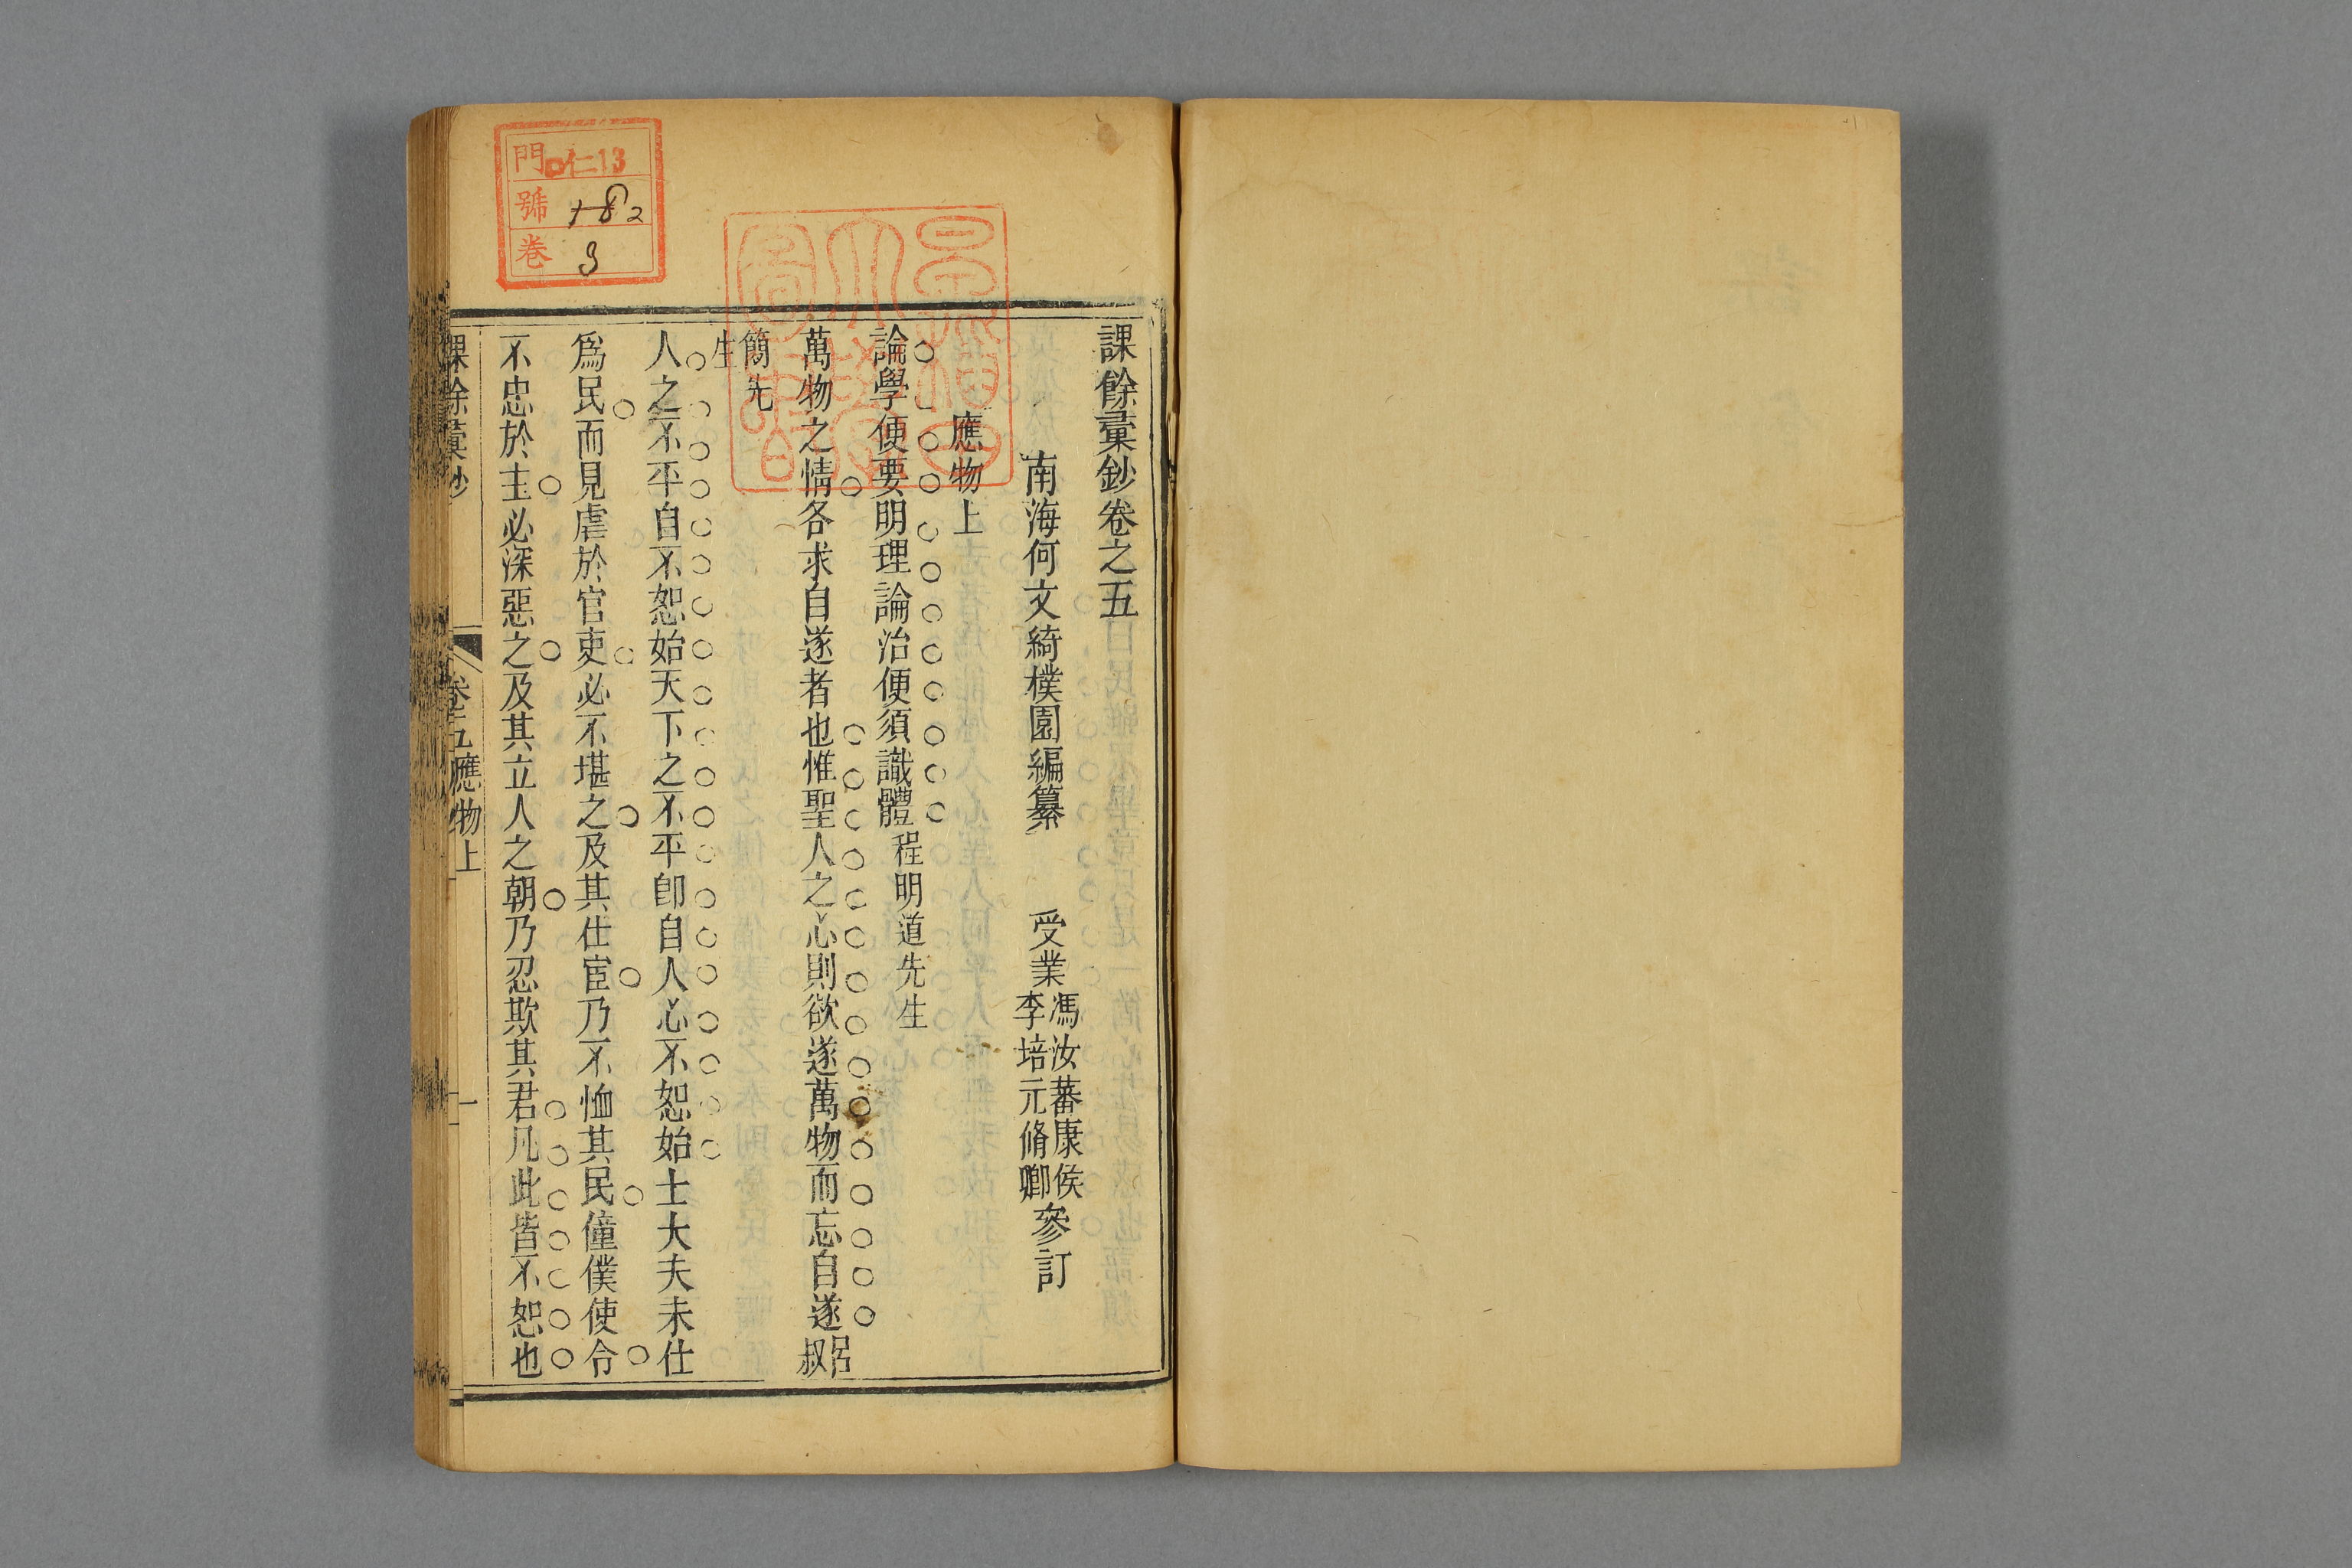 課餘彙鈔卷之五
南海何文綺樸園編纂 受業 馮汝蕃康侯 李培元脩卿 參訂
應物上
論學便要明理論治便須識體 程明道先生
萬物之情各求自遂者也惟聖人之心則欲遂萬物而忘自遂 呂叔
簡先生
人之不平自不恕始天下之不平卽自人心不恕始士大夫未仕
爲民而見虐於官吏必不堪之及其仕宦乃不恤其民僮僕使令
不忠於主必深惡之及其立人之朝乃忍欺其君凡此皆不恕也
課餘彙鈔 卷五應物上 一
門 口仁13
號 182
卷 3